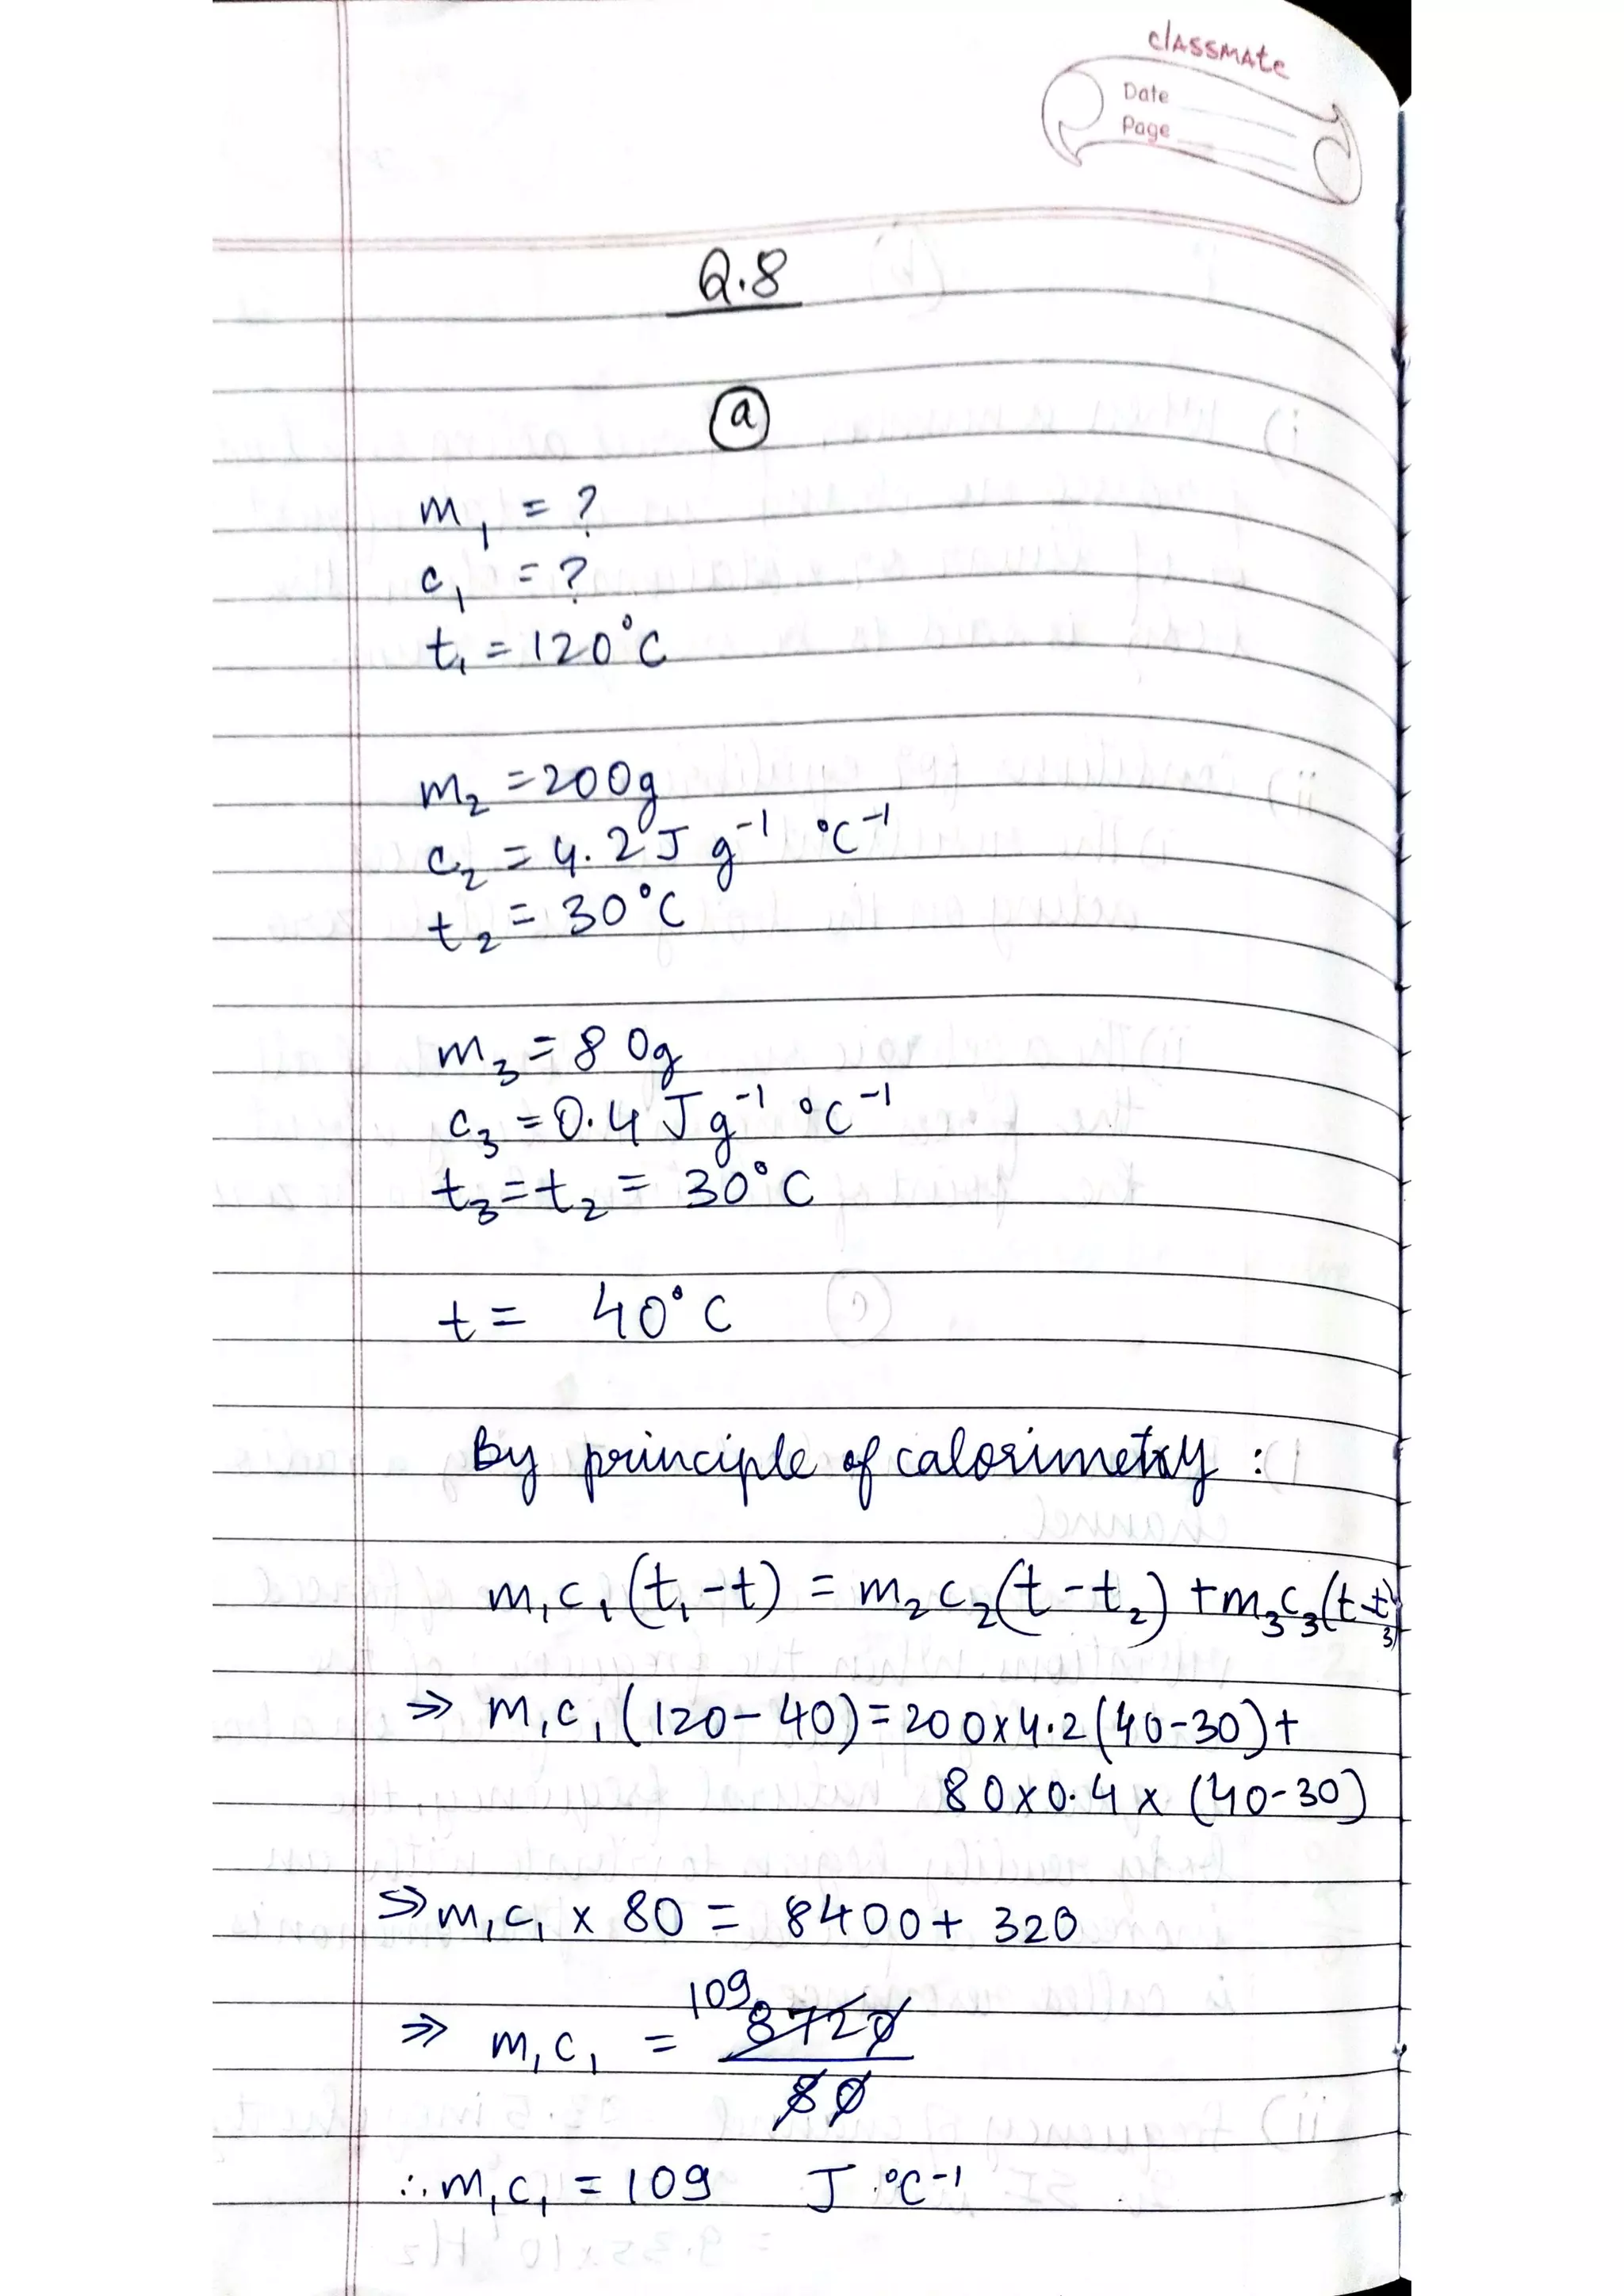 classmate
Date
Page
Q.8
(a)
m₁ = ?
c₁ = ?
t₁ = 120°C
m₂ = 200g
c₂ = 4.2 J g⁻¹ °C⁻¹
t₂ = 30°C
m₃ = 80g
c₃ = 0.4 J g⁻¹ °C⁻¹
t₃ = t₂ = 30°C
t = 40°C
By principle of calorimetry :
m₁c₁(t₁-t) = m₂c₂(t-t₂) + m₃c₃(t-t₃)
⇒ m₁c₁(120-40) = 200x4.2(40-30)+
80x0.4x(40-30)
⇒ m₁c₁ x 80 = 8400 + 320
109
⇒ m₁c₁ = 8720
80
∴ m₁c₁ = 109 J °C⁻¹